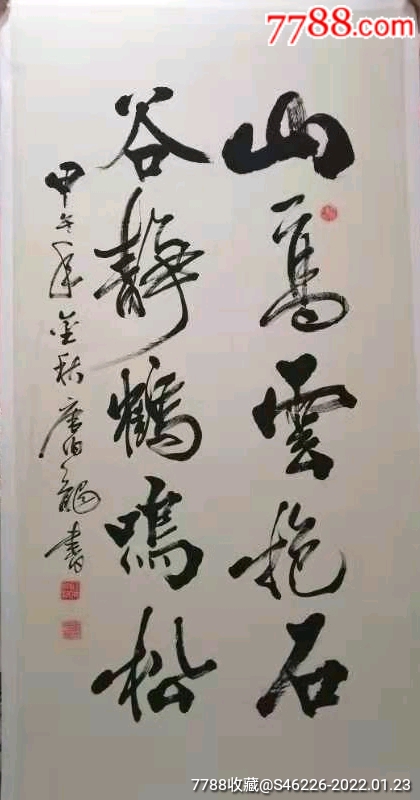 7788.com
山高雲抱石
谷靜鶴鳴松
甲午年金秋唐伯書
7788收藏@S46226-2022.01.23